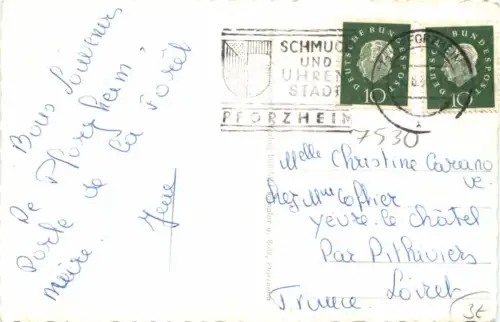 Bons Souvenirs
De Pforzheim,
Porte de la Forêt
noire. Jean
SCHMUCK
UND
UHREN
STADT
PFORZHEIM
DEUTSCHE BUNDESPOST
10
DEUTSCHE BUNDESPOST
10
7530
Melle Christine
chez Mme
Yèvre-le-châtel
Par Pithiviers
Loiret
France.
3€